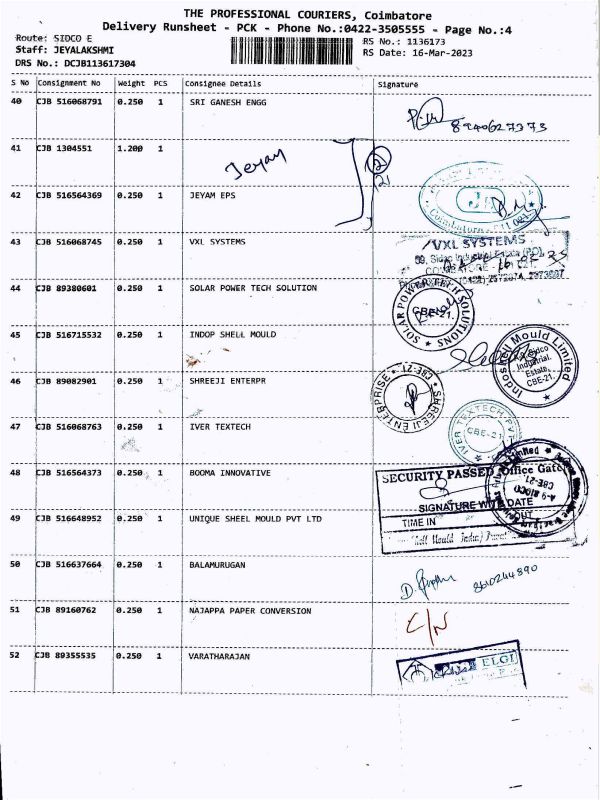 THE PROFESSIONAL COURIERS, Coimbatore
Delivery Runsheet - PCK - Phone No.:0422-3505555 - Page No.:4
Route: SIDCO E
RS No.: 1136173
Staff: JEYALAKSHMI
RS Date: 16-Mar-2023
DRS No.: DCJB113617304
S No Consignment No Weight PCS Consignee Details Signature
40 CJB 516068791 0.250 1 SRI GANESH ENGG
8940627373
41 CJB 1304551 1.200 1
Jeyam
42 CJB 516564369 0.250 1 JEYAM EPS
43 CJB 516068745 0.250 1 VXL SYSTEMS
VXL SYSTEMS
44 CJB 89380601 0.250 1 SOLAR POWER TECH SOLUTION
SOLAR POWER TECH SOLUTIONS
CBE-21.
45 CJB 516715532 1 INDOP SHELL MOULD
Indoshell Mould Limited
Sidco
Industrial
Estate,
CBE-21.
46 CJB 89082901 0.250 1 SHREEJI ENTERPR
SHREEJI ENTERPRISE CBE-21
47 CJB 516068763 0.250 1 IVER TEXTECH
IVER TEXTECH PVT
CBE-21
48 CJB 516564373 0.250 1 BOOMA INNOVATIVE
SECURITY PASSED Office Gate
SIGNATURE WITH DATE
TIME IN OUT
A-9 SIDCO
CBE-21
49 CJB 516648952 0.250 1 UNIQUE SHEEL MOULD PVT LTD
50 CJB 516637664 0.250 1 BALAMURUGAN
51 CJB 89160762 0.250 1 NAJAPPA PAPER CONVERSION
C/N
52 CJB 89355535 0.250 1 VARATHARAJAN
ELGI